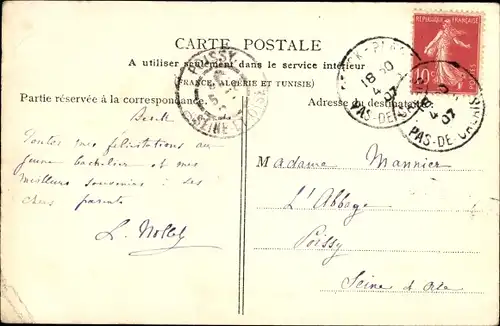 CARTE POSTALE
A utiliser seulement dans le service intérieur
(FRANCE, ALGÉRIE ET TUNISIE)
Partie réservée à la correspondance.
Adresse du destinataire.
REPUBLIQUE FRANÇAISE
10
POISSY
SEINE ET OISE
18
4
07
PAS-DE-CALAIS
4
07
PAS-DE-CALAIS
Toutes mes félicitations au
jeune bachelier et mes
meilleurs souvenirs à ses
chers parents
Madame Mannier
L'Abbaye
Poissy
Seine et Oise